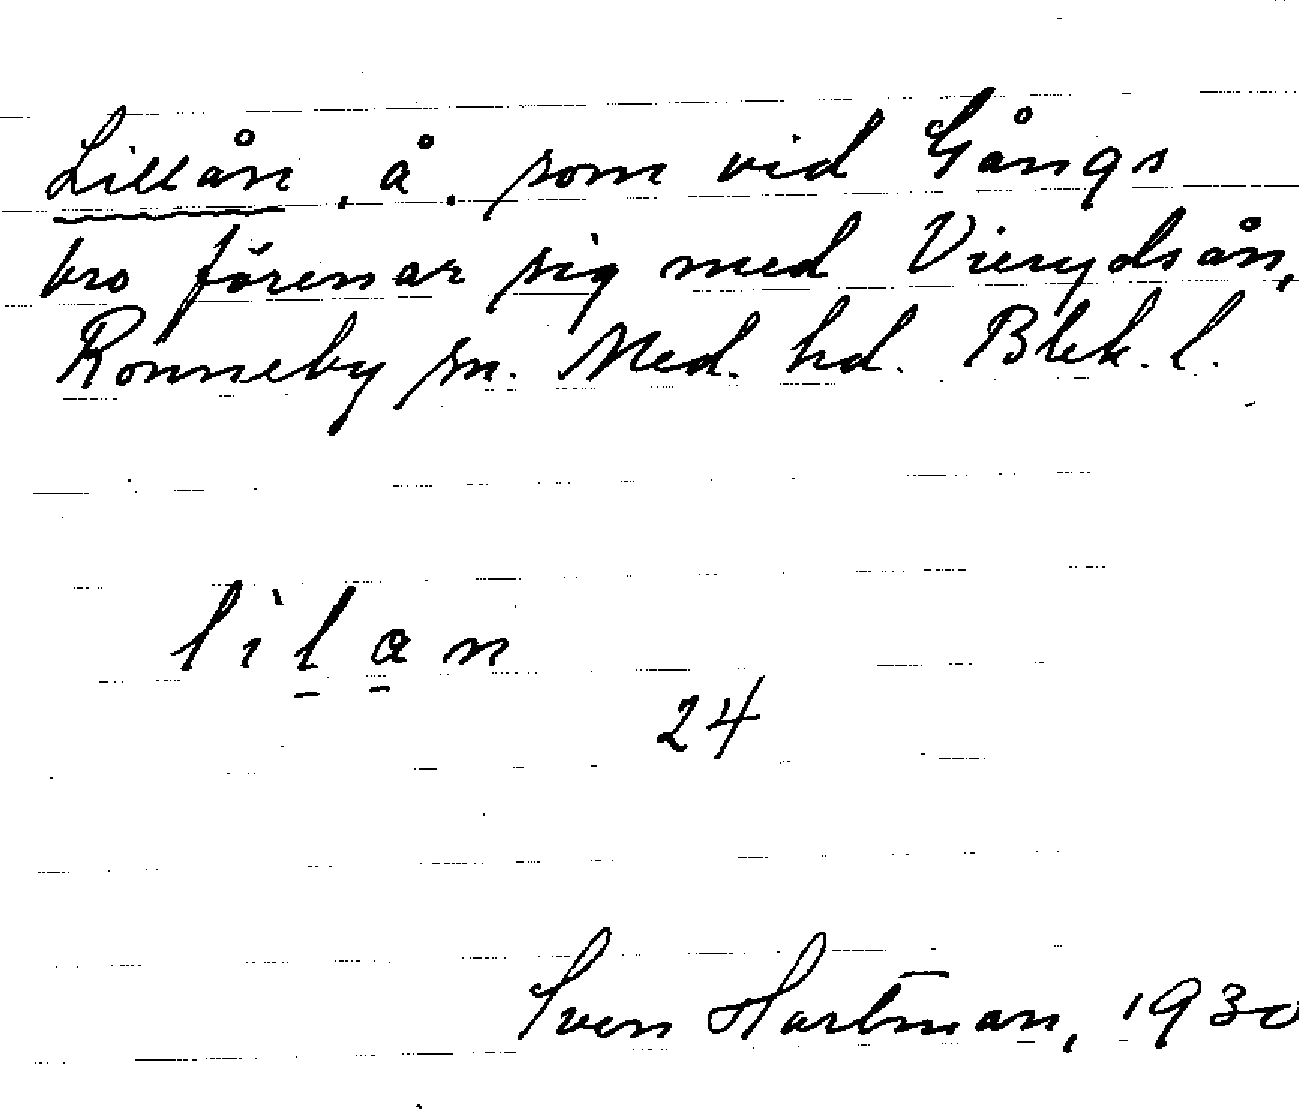 Lillån, å. som vid Gångs
bro förenar sig med Vierydsån,
Ronneby sn. Med. hd. Blek. l.
lilan
24
Sven Hartman, 1930